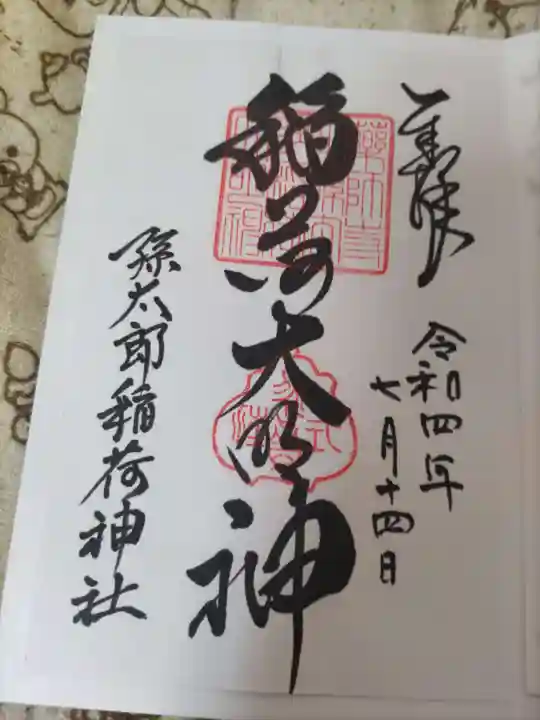 奉拝
令和四年
七月十四日
稲荷大明神
孫太郎稲荷神社